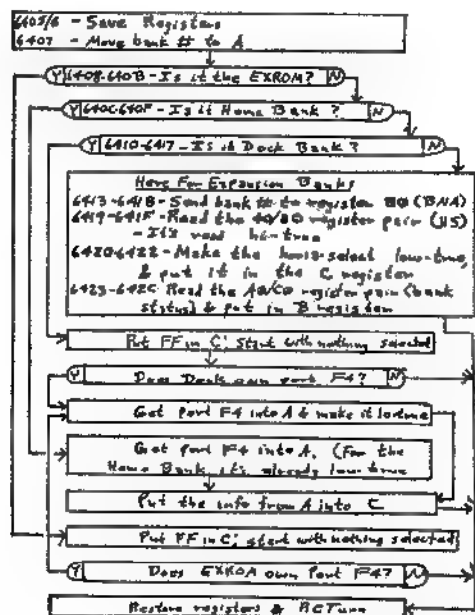 6405/6 - Save Registers
6407 - Move bank # to A
Y 6408-640B - Is it the EXROM? N
Y 640C-640F - Is it Home Bank ? N
Y 6410-6417 - Is it Dock Bank ? N
Here For Expansion Banks
6413-6418 - Send bank # to register 80 (BNA)
6419-641F - Read the 40/80 register pair (HS)
- It's read hi-true
6420-6422 - Make the horiz-select low-true,
& put it in the C register
6423-642C Read the A0/C0 register pair (bank
status) & put in B register
Put FF in C; start with nothing selected
Y Does Dock own port F4? N
Get port F4 into A & make it lo-true
Get port F4 into A. (For the
Home Bank it's already low-true
Put the info from A into C
Put FF in C; start with nothing selected
Y Does EXROM own Port F4? N
Restore registers & RETurn